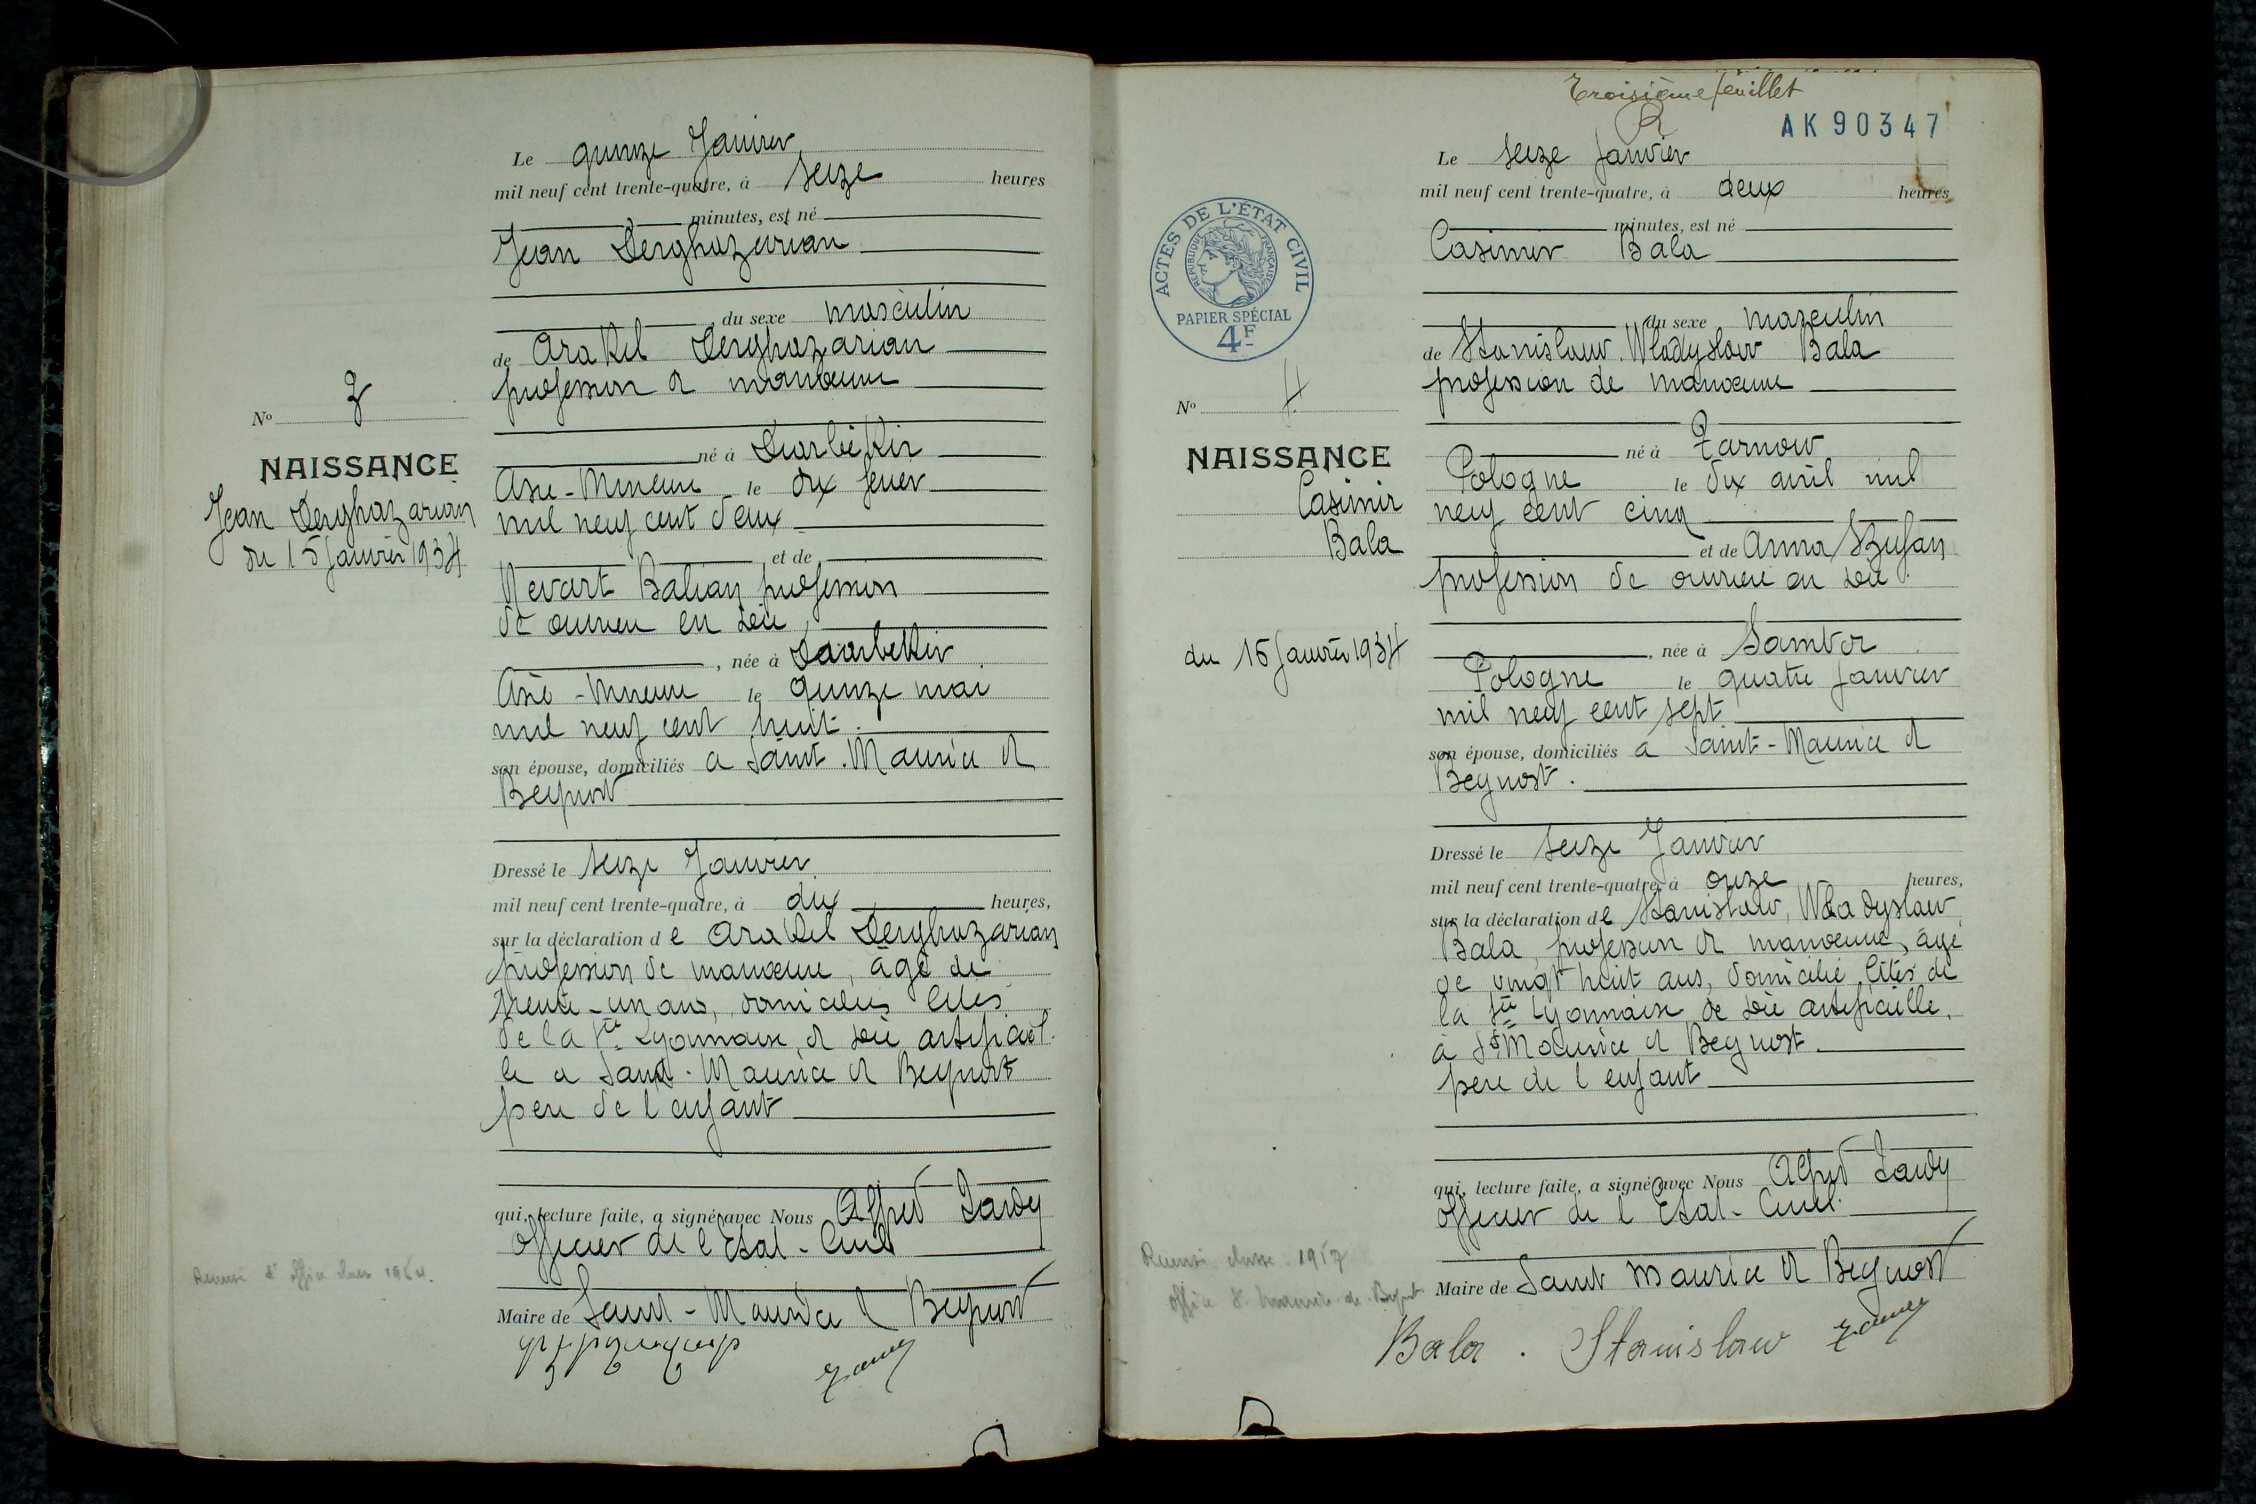 Le quinze Janvier
mil neuf cent trente-quatre, à seize heures
minutes, est né
Jean Derghazarian
, du sexe masculin
de Arakel Derghazarian
profession de manœuvre
né à Diarbékir
Asie-Mineure le dix
mil neuf cent deux
et de
Nevart Balian profession
de ouvrière en soie
, née à Diarbekir
Asie-Mineure le quinze mai
mil neuf cent huit
son épouse, domiciliés à Saint-Maurice de
Beynost
Dressé le seize Janvier
mil neuf cent trente-quatre, à dix heures,
sur la déclaration de Arakel Derghazarian
profession de manœuvre, âgé de
trente-un ans, domicilié Cités
de la Sté Lyonnaise de soie artificiel
le à Saint-Maurice de Beynost
père de l'enfant
qui, lecture faite, a signé avec Nous Alfred
Officier de l'Etat-Civil
Maire de Saint-Maurice de Beynost
No 3
NAISSANCE
Jean Derghazarian
du 15 Janvier 1934
Troisième feuillet
AK 90347
ACTES DE L'ÉTAT CIVIL
RÉPUBLIQUE FRANÇAISE
PAPIER SPÉCIAL
4F
No 4
NAISSANCE
Casimir
Bala
du 16 Janvier 1934
Le seize Janvier
mil neuf cent trente-quatre, à deux heures
minutes, est né
Casimir Bala
du sexe masculin
de Stanislaw. Wladyslaw Bala
profession de manœuvre
né à Tarnow
Pologne le dix avril mil
neuf cent cinq
et de Anna Szufan
profession de ouvrière en soie.
, née à Sambor
Pologne le quatre Janvier
mil neuf cent sept
son épouse, domiciliés à Saint-Maurice de
Beynost.
Dressé le seize Janvier
mil neuf cent trente-quatre, à onze heures,
sur la déclaration de Stanislaw, Wladyslaw
Bala, profession de manœuvre, âgé
de vingt huit ans, domicilié Cités de
la Sté Lyonnaise de soie artificielle,
à St Maurice de Beynost
père de l'enfant
qui, lecture faite, a signé avec Nous Alfred
Officier de l'Etat-Civil.
Maire de Saint Maurice de Beynost
Bala. Stanislaw